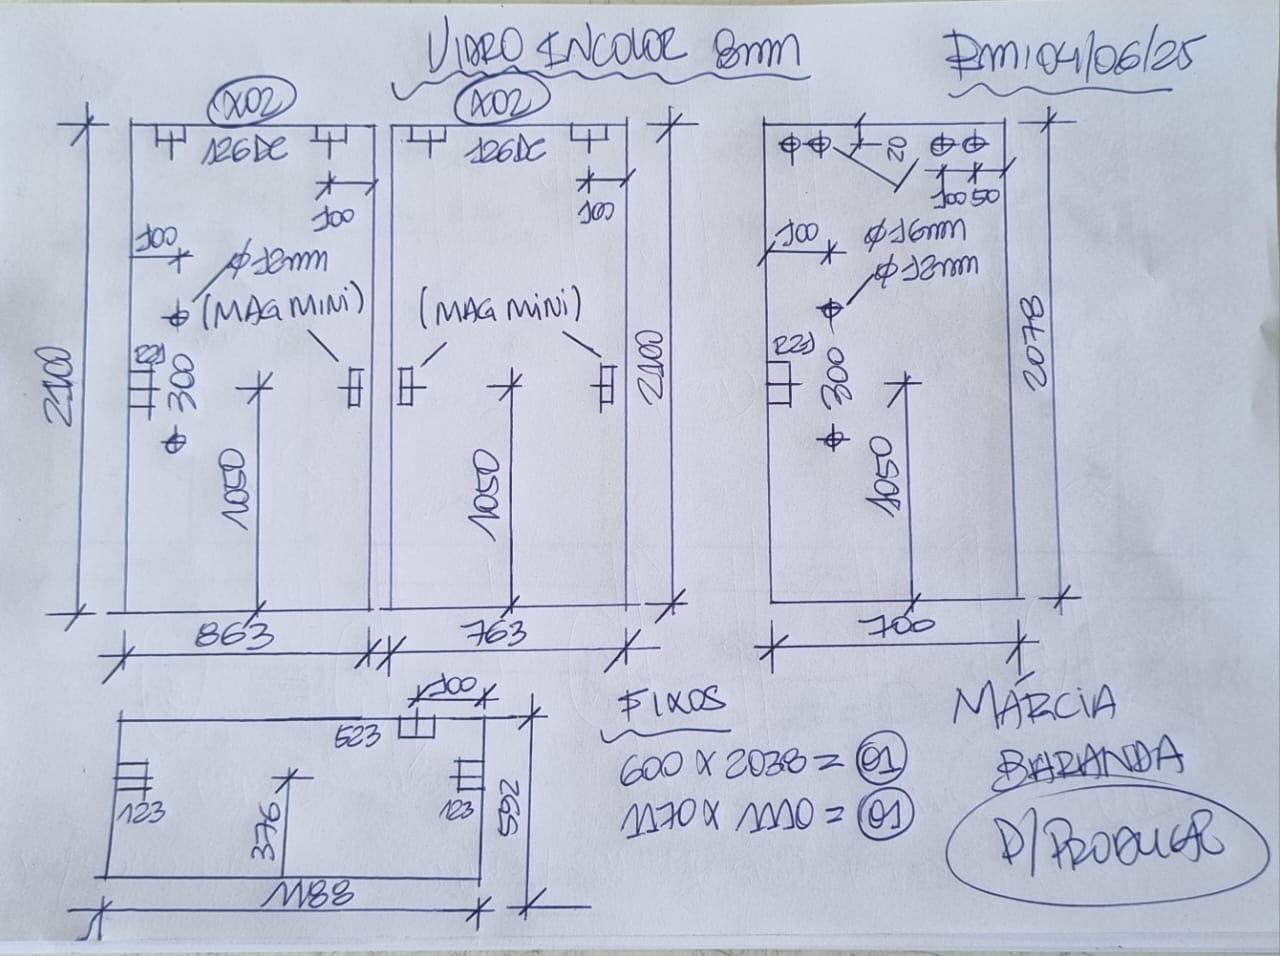 VIDRO INCOLOR 8mm
EM:04/06/25
X02
X02
126DC
126DC
20
100
100
100 50
100
100
Ø12mm
Ø16mm
Ø12mm
(MAG MINI)
(MAG MINI)
2100
300
2100
300
2078
1050
1050
1050
863
763
700
100
523
123
123
376
1188
FIXOS
600 X 2038 = 01
1170 X 1110 = 01
MÁRCIA
BARANDA
P/PRODUÇÃO